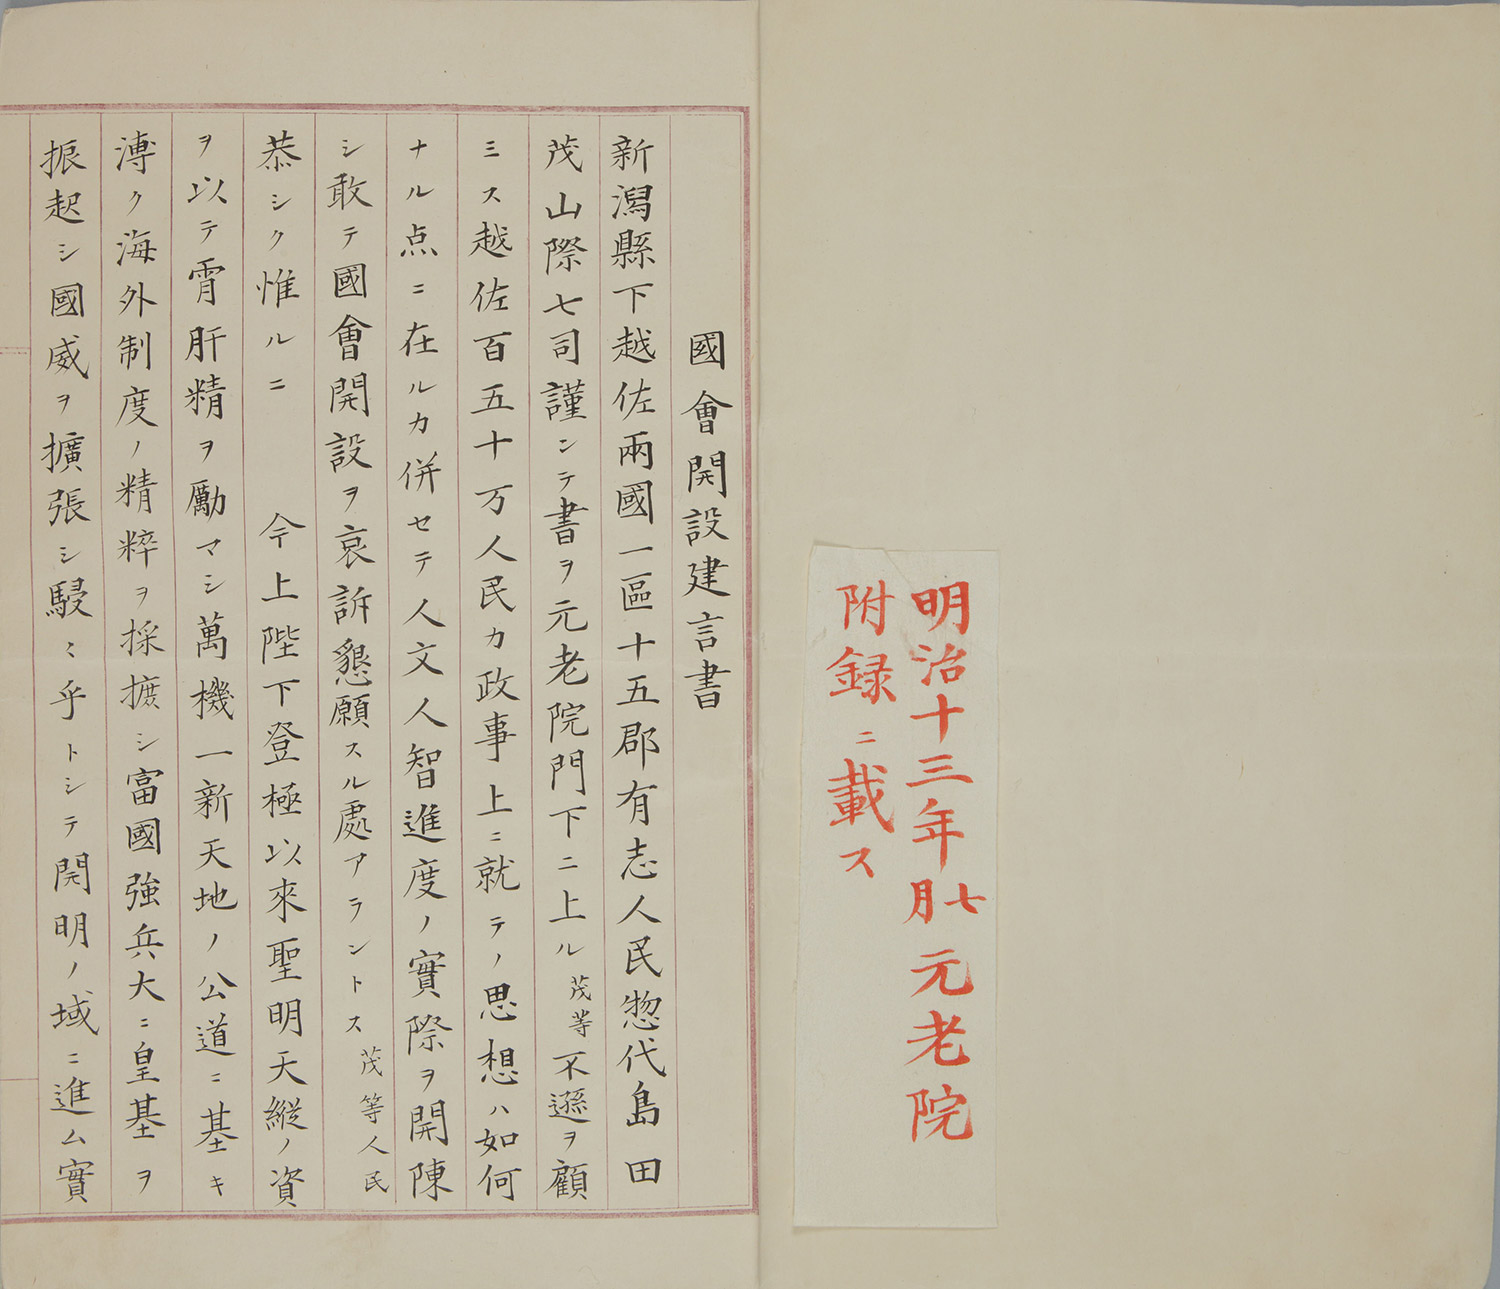 明治十三年七月元老院
附録ニ載ス
國會開設建言書
新潟縣下越佐兩國一區十五郡有志人民惣代島田
茂山際七司謹ンテ書ヲ元老院門下ニ上ル茂等不遜ヲ顧
ミス越佐百五十万人民カ政事上ニ就テノ思想ハ如何
ナル点ニ在ルカ併セテ人文人智進度ノ實際ヲ開陳
シ敢テ國會開設ヲ哀訴懇願スル處アラントス茂等人民
恭シク惟ルニ 今上陛下登極以來聖明天縦ノ資
ヲ以テ霄肝精ヲ勵マシ萬機一新天地ノ公道ニ基キ
溥ク海外制度ノ精粹ヲ採摭シ富國強兵大ニ皇基ヲ
振起シ國威ヲ擴張シ駸〻乎トシテ開明ノ域ニ進ム實